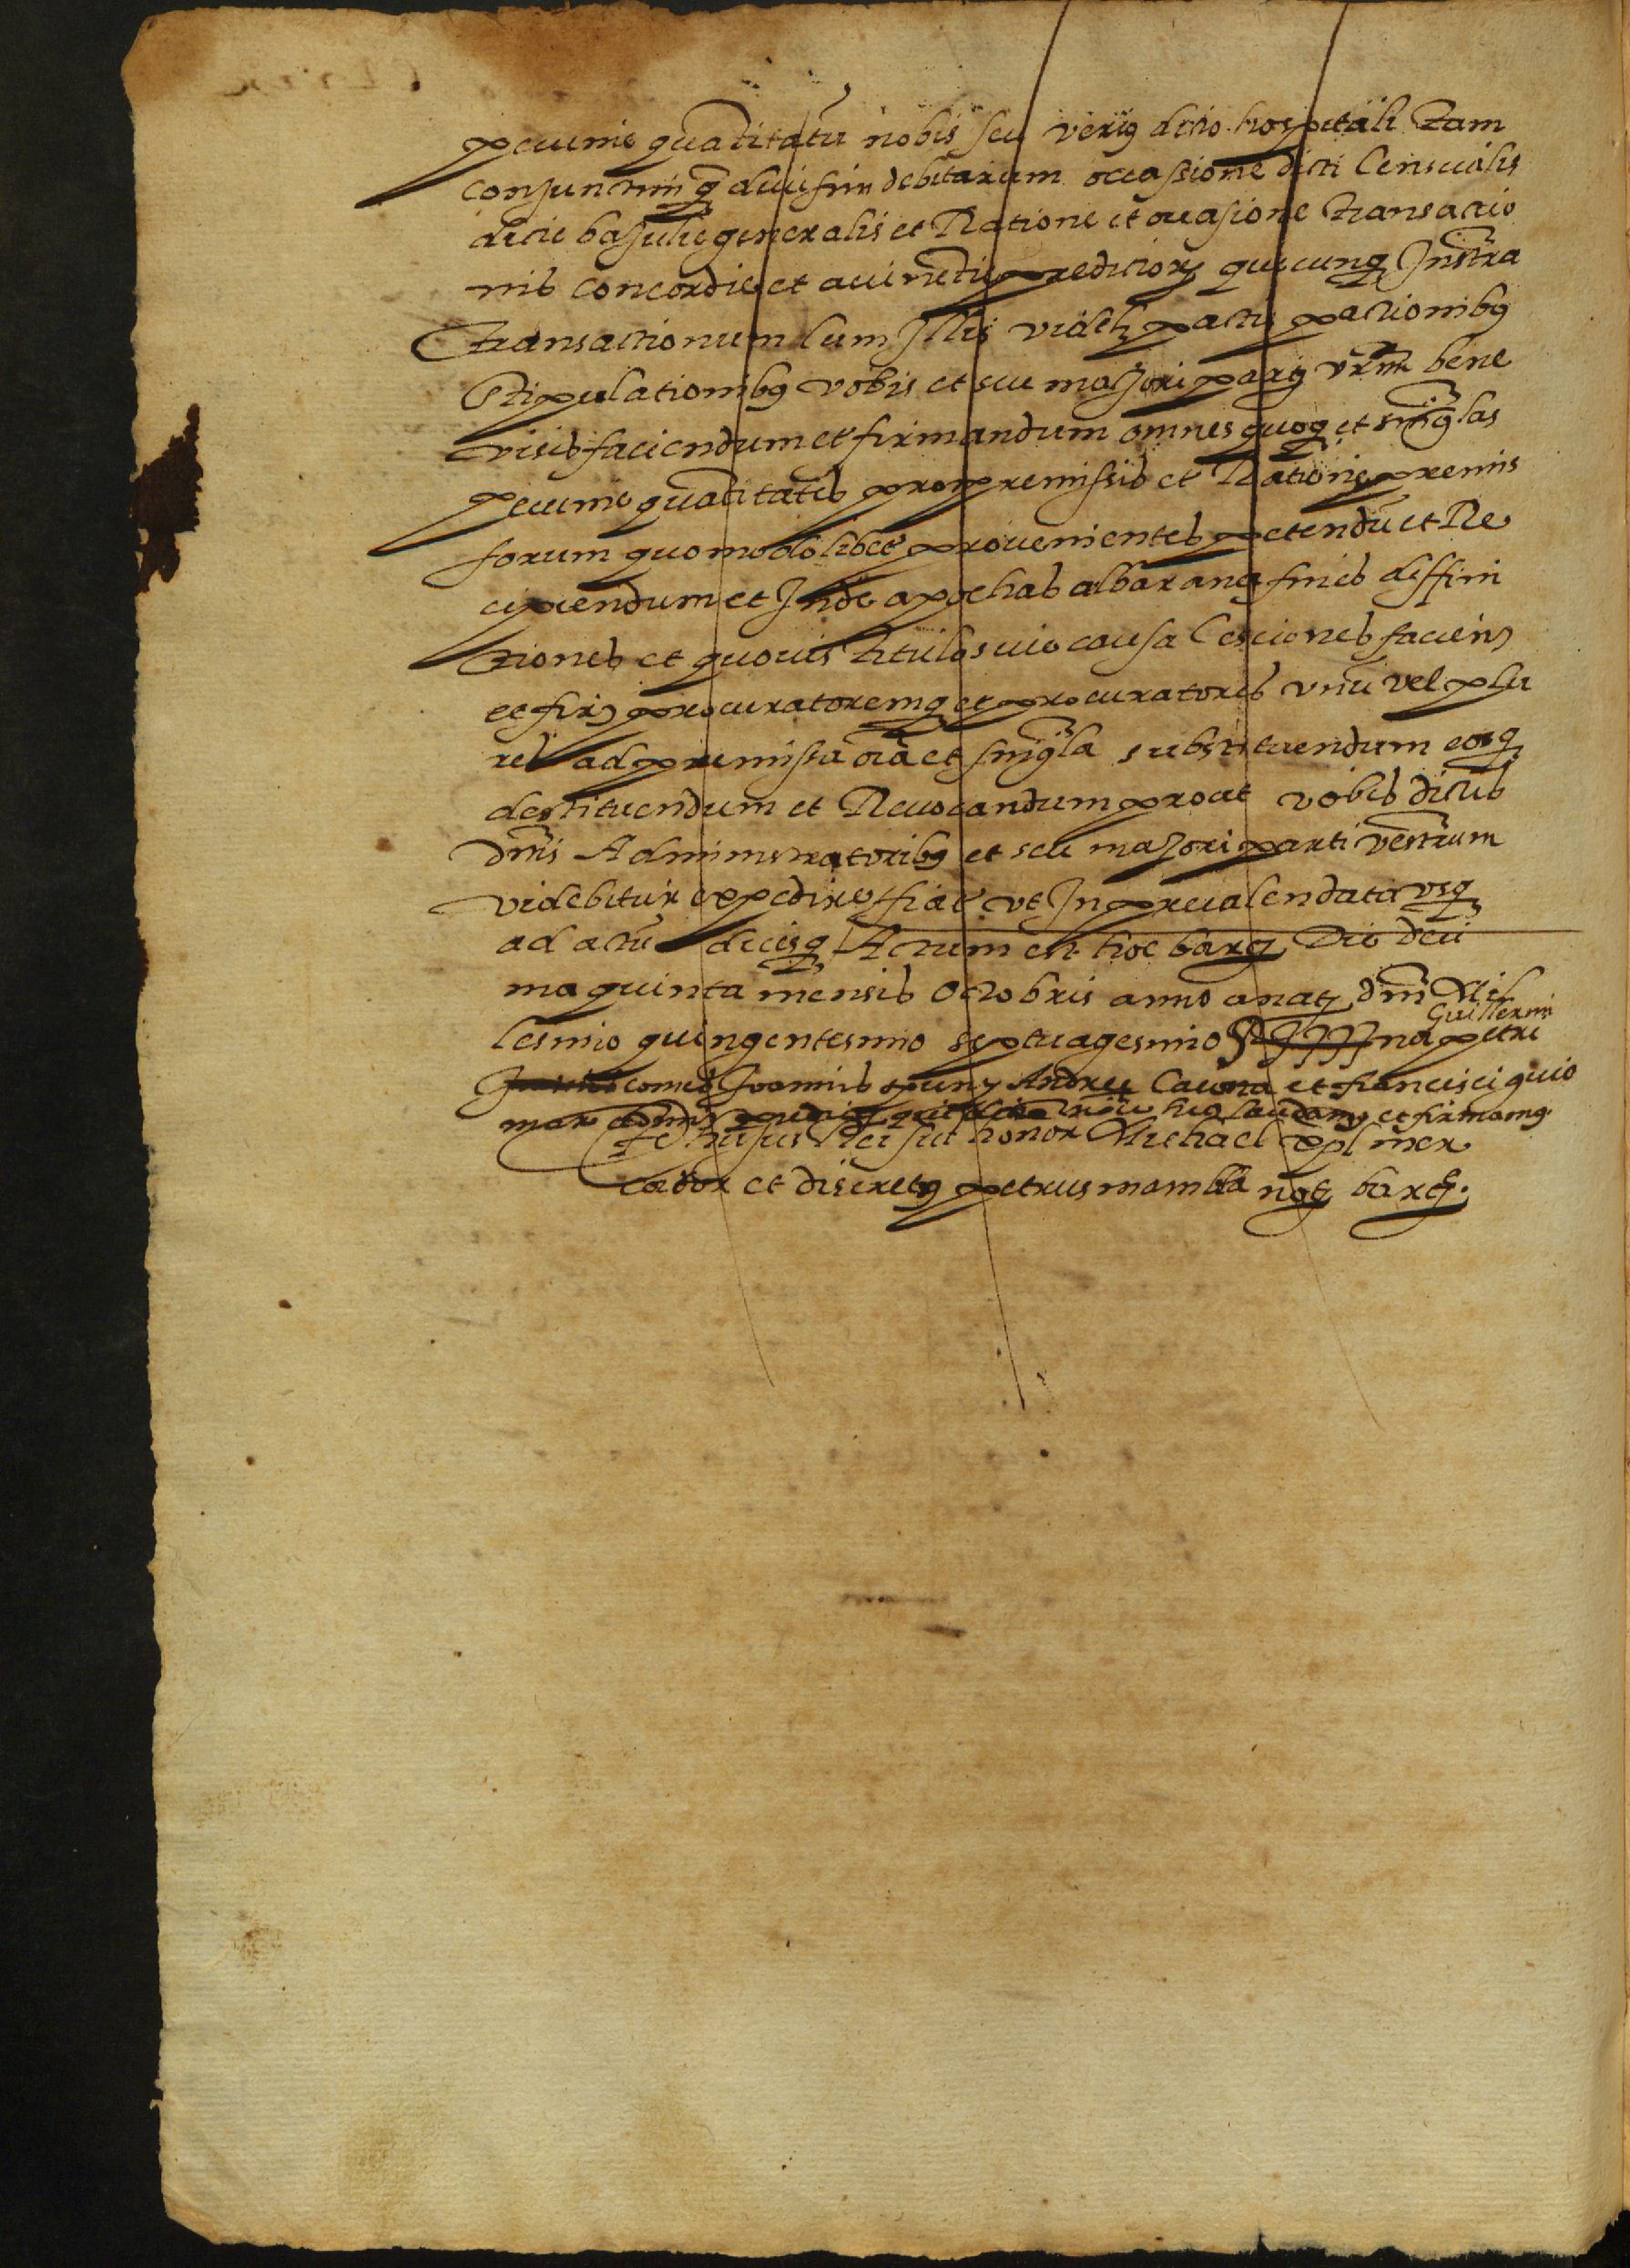 pecunie quatitatu nobis seu verius dicto hospitali tam
conjunctim q divisim debitarum occassione dicti Censualis
dicte bajulie generalis et Ratione et occasione transactio
nis concordie et avinetie predictorum quecunq Instra
transactionum cum Illis videlt pactis pactionibus
stipulationibus vobis et seu majori parti vrm bene
visis faciendum et firmandum omnes quoq et singlas
pecunie quatitates pro premissis et Ratione premis
sorum quomodolibet provenientes petendu et Re
cipiendum et Inde apochas albarana fines diffini
tiones et quovis titulo sive causa Cesciones faciend
et fird procuratoremq et procuratores unu vel plu
res ad premissa oia et singla substituendum eosq
destituendum et Revocandum prout vobis dictis
dnis Administratoribus et seu majori parti vestrum
videbitur expedire ffiat ut In precalendata usq
ad actu decisq Actum est hoc barq Die deci
ma quinta mensis Octobris anno a nat dni Mil
lesmio quingentesmio septuagesmio
Guillermi
na petri
Joannis Andree et francisci guio
mar laudamus et firmamq
Testes hujus Rei sut honor Michael mer
cator et discretus petrus mambla not barq.